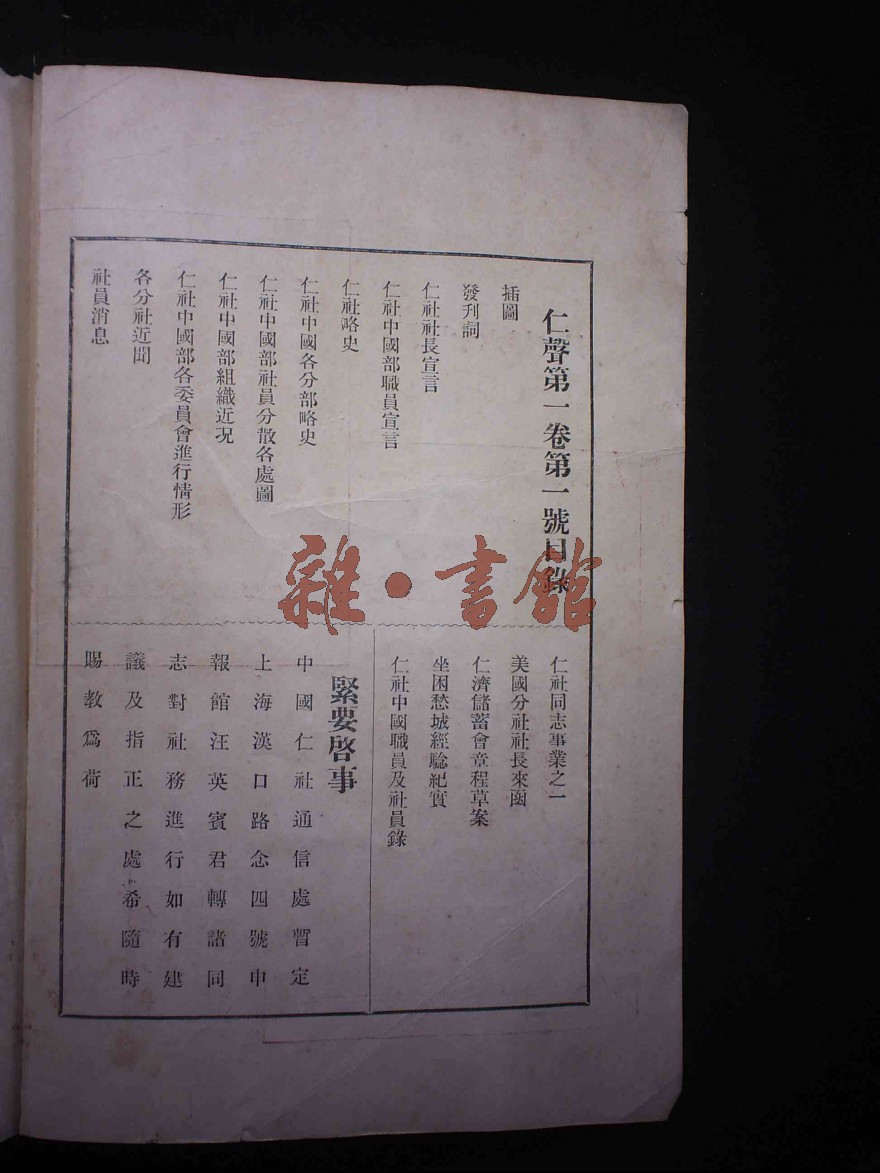 仁聲第一卷第一號目錄
插圖
發刊詞
仁社社長宣言
仁社中國部職員宣言
仁社略史
仁社中國各分部略史
仁社中國部社員分散各處圖
仁社中國部組織近況
仁社中國部各委員會進行情形
各分社近聞
社員消息
仁社同志事業之一
美國分社社長來函
仁濟儲蓄會章程草案
坐困愁城經驗紀實
仁社中國職員及社員錄
緊要啓事
中國仁社通信處暫定
上海漢口路念四號申
報館汪英賓君轉諸同
志對社務進行如有建
議及指正之處希隨時
賜教爲荷
雜·書館